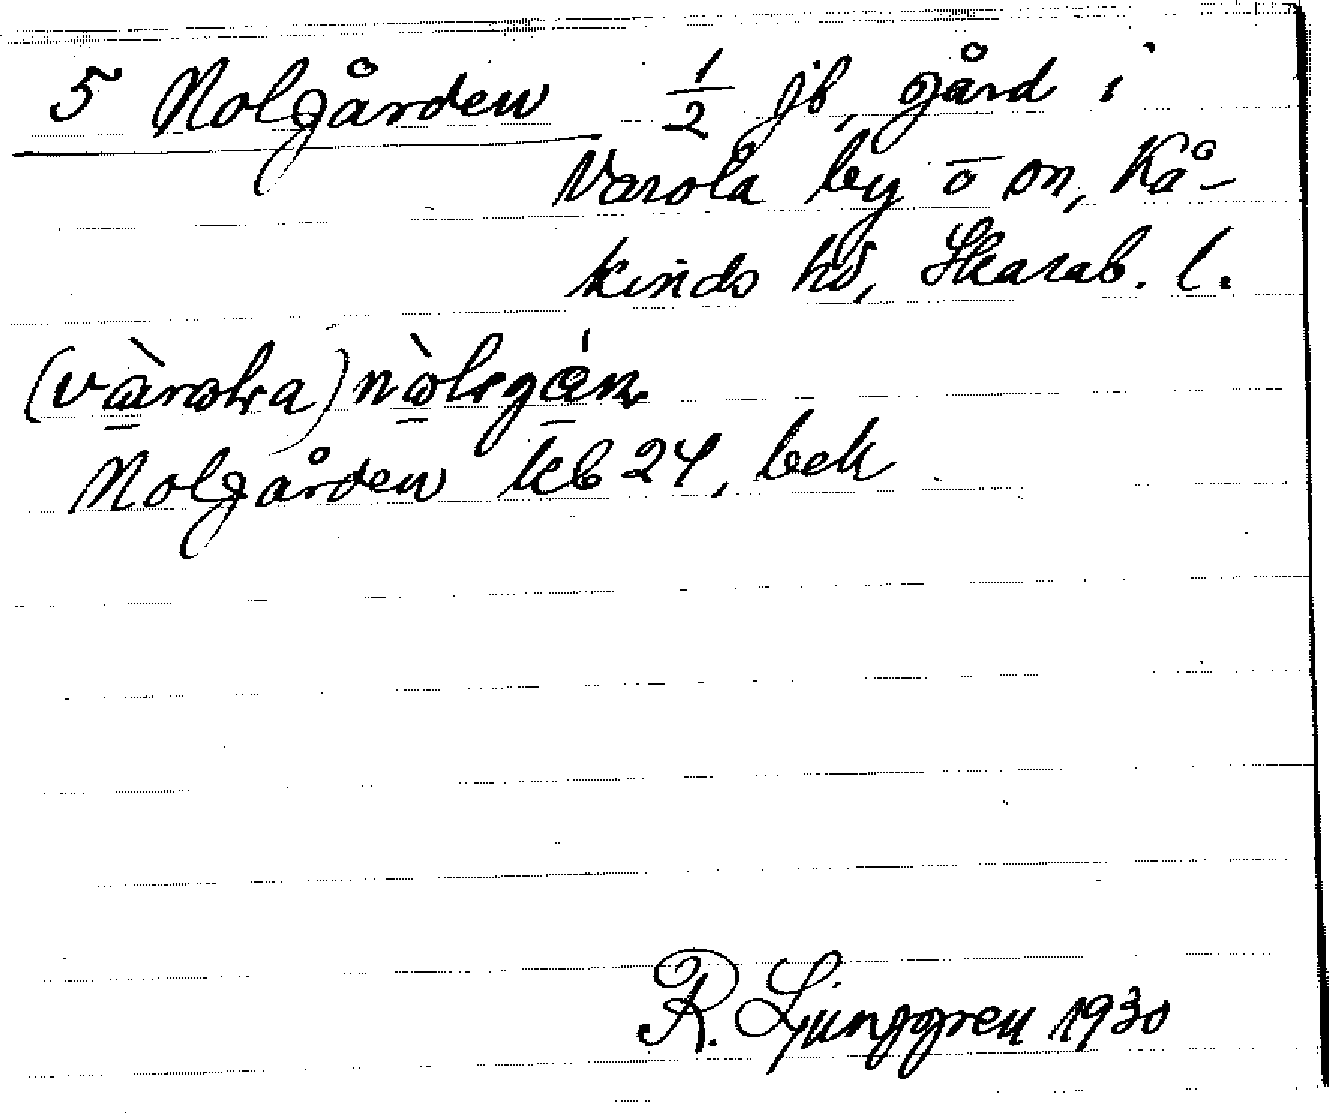 5 Nolgården 1/2 jb, gård i
Varola by o sn, Kå-
kinds hd, Skarab. l.
Nolgården kb 24, bek
R. Ljunggren 1930